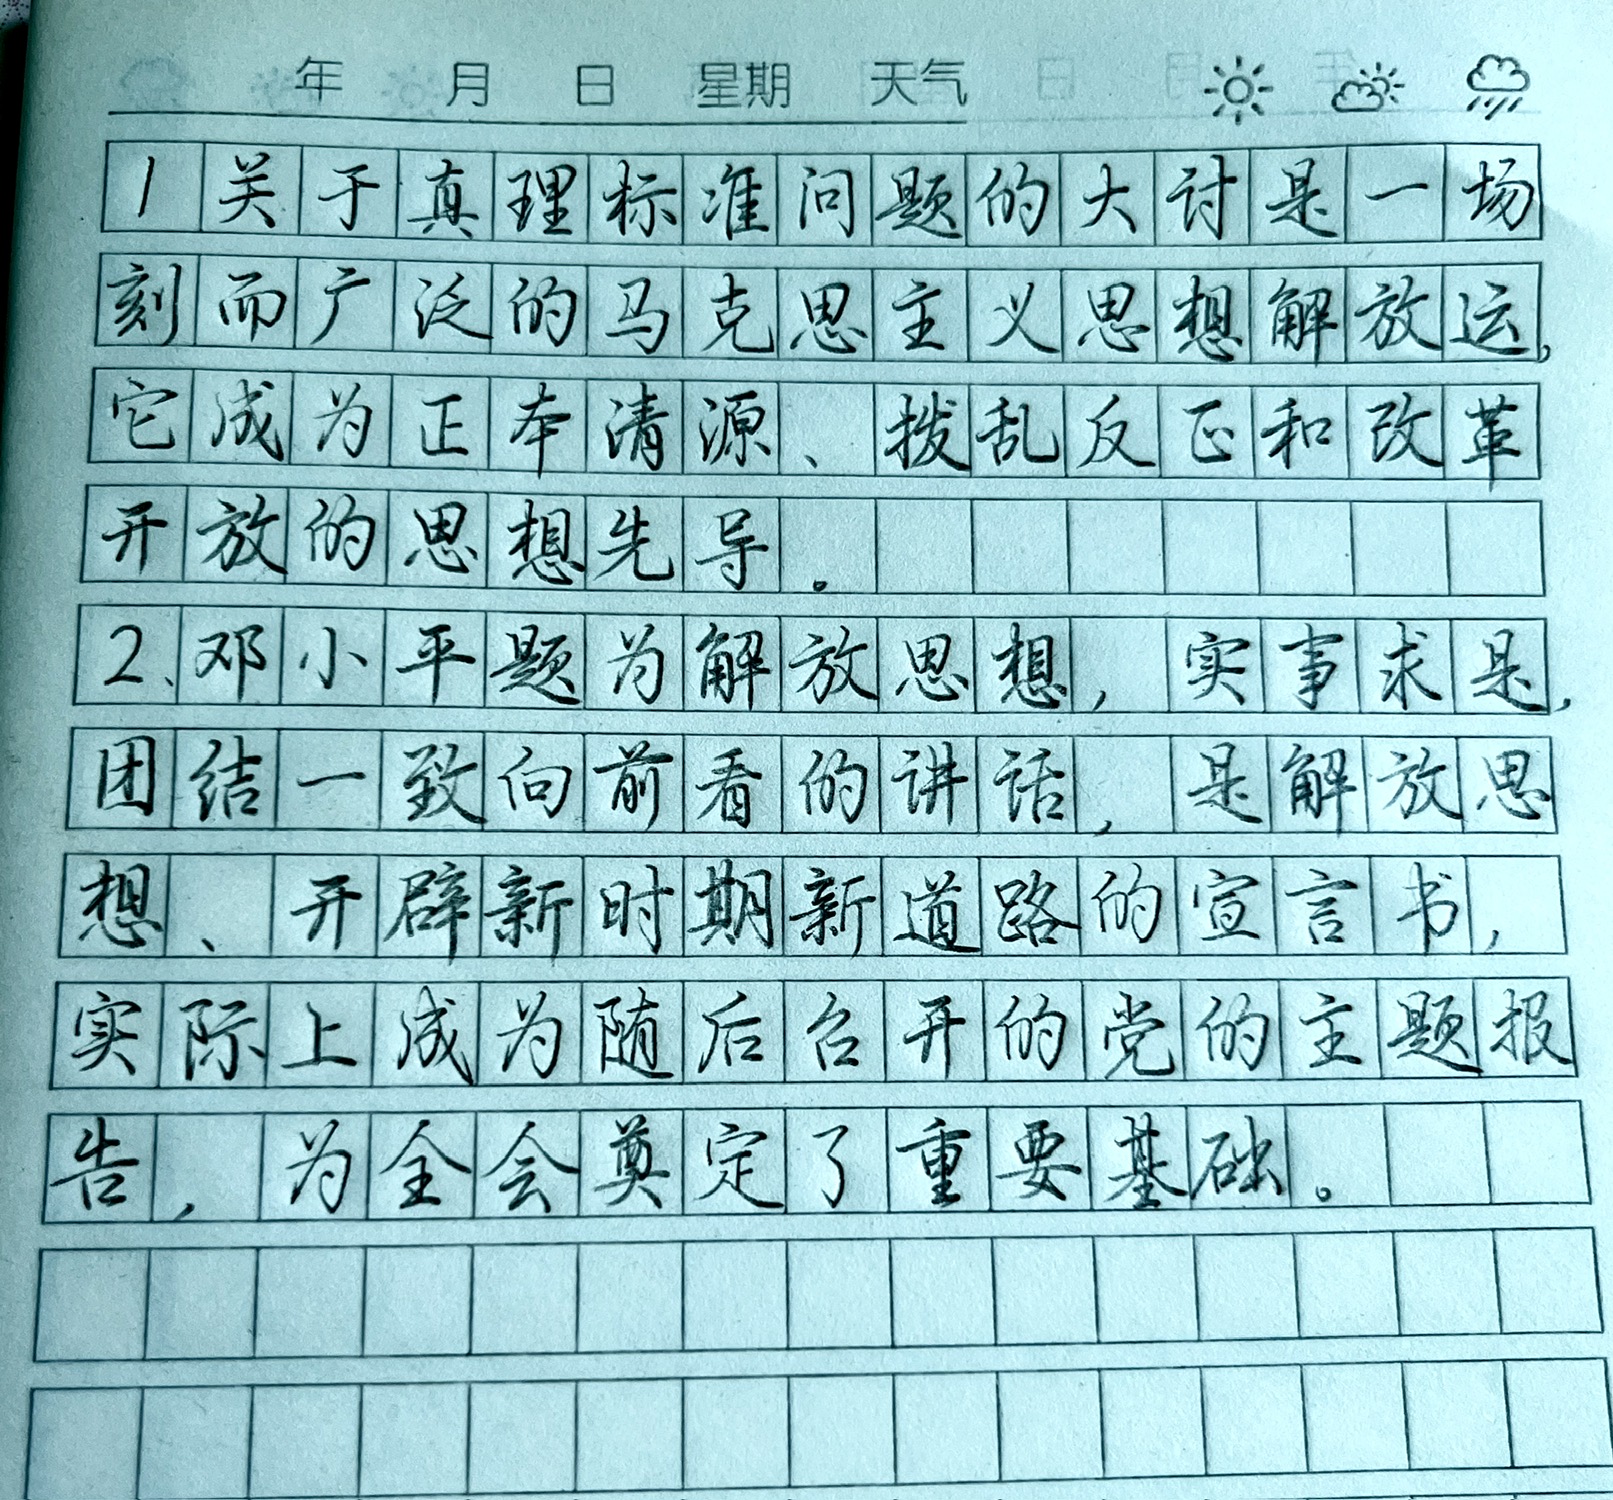 年 月 日 星期 天气
1 关于真理标准问题的大讨是一场
刻而广泛的马克思主义思想解放运,
它成为正本清源、拨乱反正和改革
开放的思想先导。
2、邓小平题为解放思想, 实事求是,
团结一致向前看的讲话, 是解放思
想、开辟新时期新道路的宣言书,
实际上成为随后召开的党的主题报
告, 为全会奠定了重要基础。